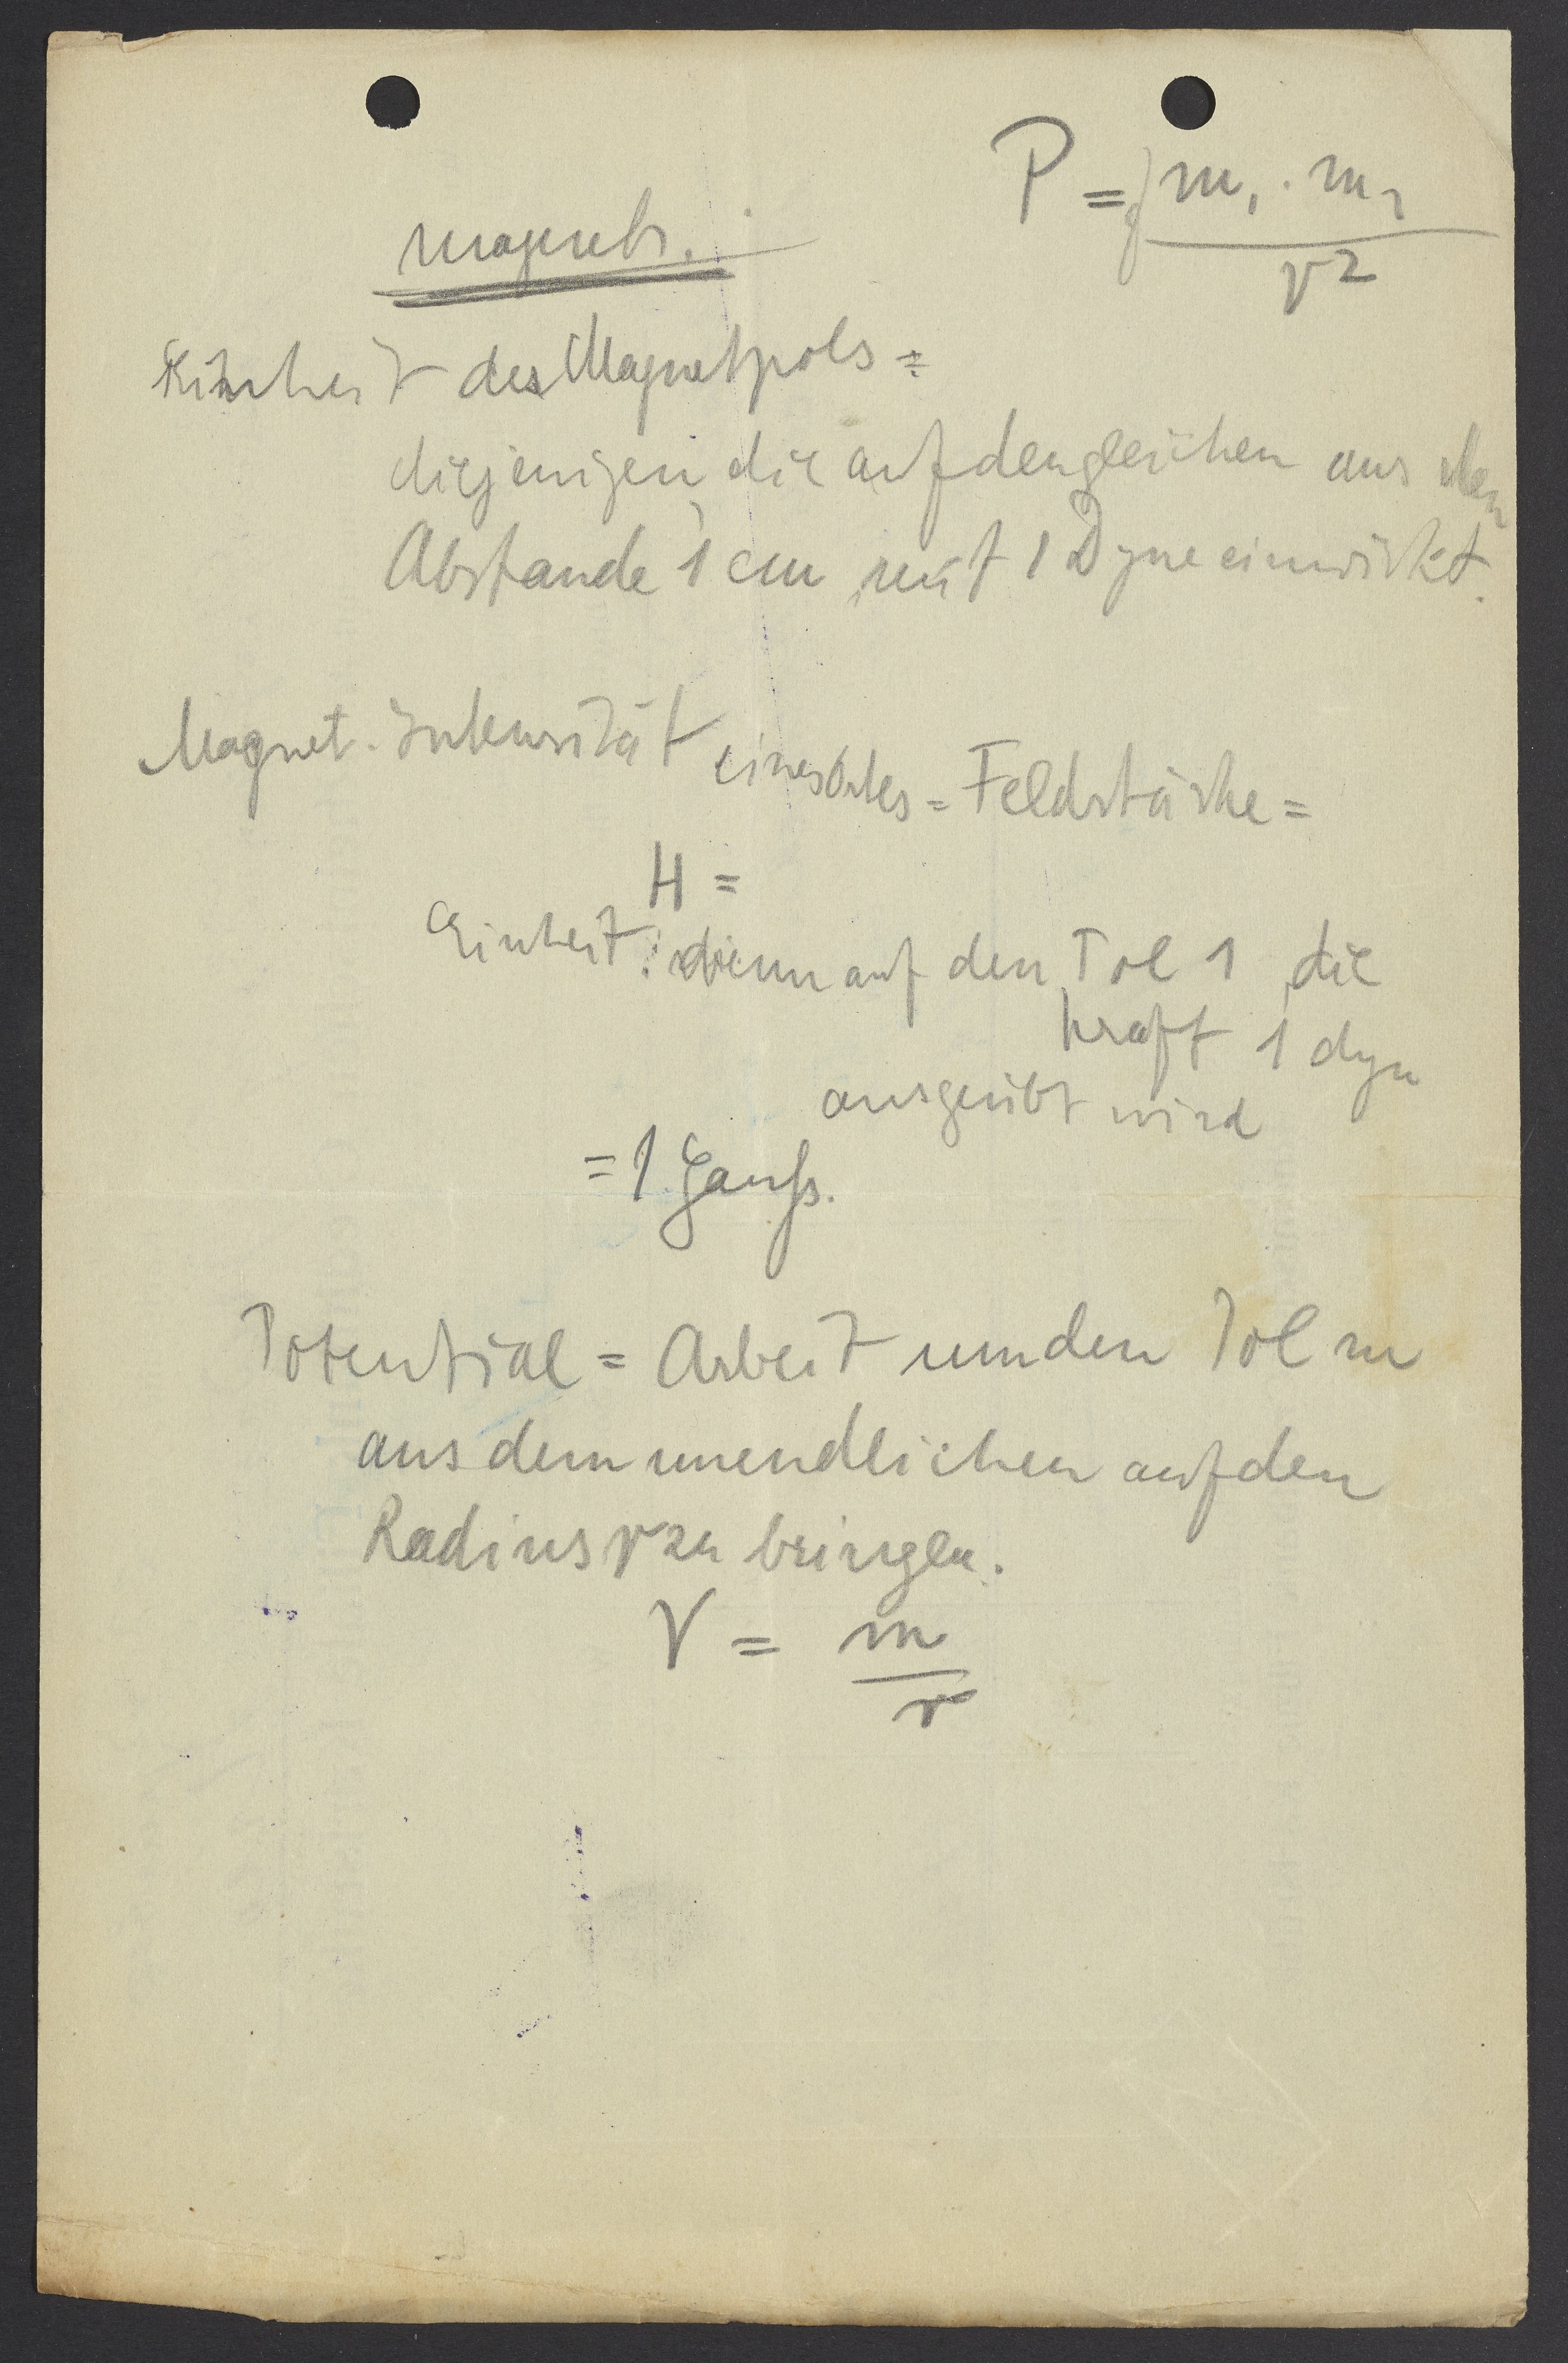 P = f m₁ · m₂
r²
magnet.
Einheit des Magnetpols =
diejenigen, die auf den gleichen aus dem
Abstande 1 cm mit 1 Dyne einwirkt.
Magnet. Intensität eines Ortes = Feldstärke =
H =
Einheit: wenn auf den Pol 1 die
Kraft 1 dyn
ausgeübt wird
= 1 Gauß.
Potential = Arbeit um den Pol m
aus dem unendlichen auf den
Radius r zu bringen.
V = m
r